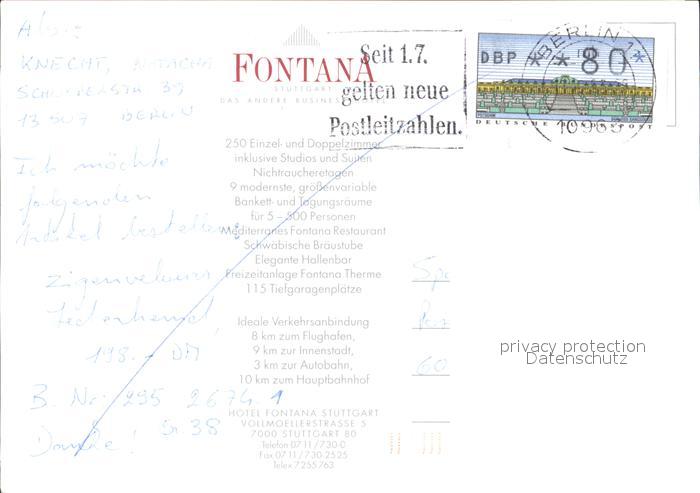 Seit 1.7.
gelten neue
Postleitzahlen.
DBP * 80 *
BERLIN
DEUTSCHE BUNDESPOST
FONTANA
STUTTGART
DAS ANDERE BUSINESS
250 Einzel- und Doppelzimmer
inklusive Studios und Suiten
Nichtraucheretagen
9 modernste, größenvariable
Bankett- und Tagungsräume
für 5 – 500 Personen
Mediterranes Fontana Restaurant
Schwäbische Bräustube
Elegante Hallenbar
Freizeitanlage Fontana Therme
115 Tiefgaragenplätze
Ideale Verkehrsanbindung
8 km zum Flughafen,
9 km zur Innenstadt,
3 km zur Autobahn,
10 km zum Hauptbahnhof
HOTEL FONTANA STUTTGART
VOLLMOELLERSTRASSE 5
7000 STUTTGART 80
Telefon 0711/730-0
Fax 0711/730-2525
Telex 7255763
KNECHT, NATACHA
13507 BERLIN
Ich möchte
folgenden
Artikel bestellen:
198.- DM
B. Nr. 295 2674 1
Gr 38
Danke!
60
privacy protection
Datenschutz